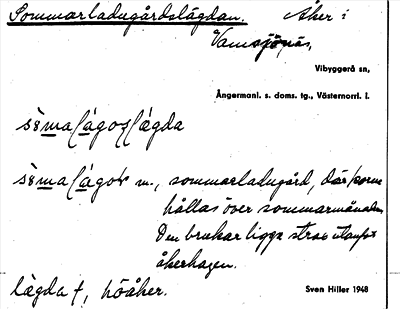 Sommarladugårdslägdan. Åker i
Vamsjönäs,
Vibyggerå sn,
Ångermanl. s. doms. tg., Västernorrl. l.
sòmalágoslägda
sòmalágoʀ m., sommarladugård, där korna
hållas över sommarmånaden
Den brukar ligga strax utanför
åkerhagen.
lägda f, höåker.
Sven Hiller 1948